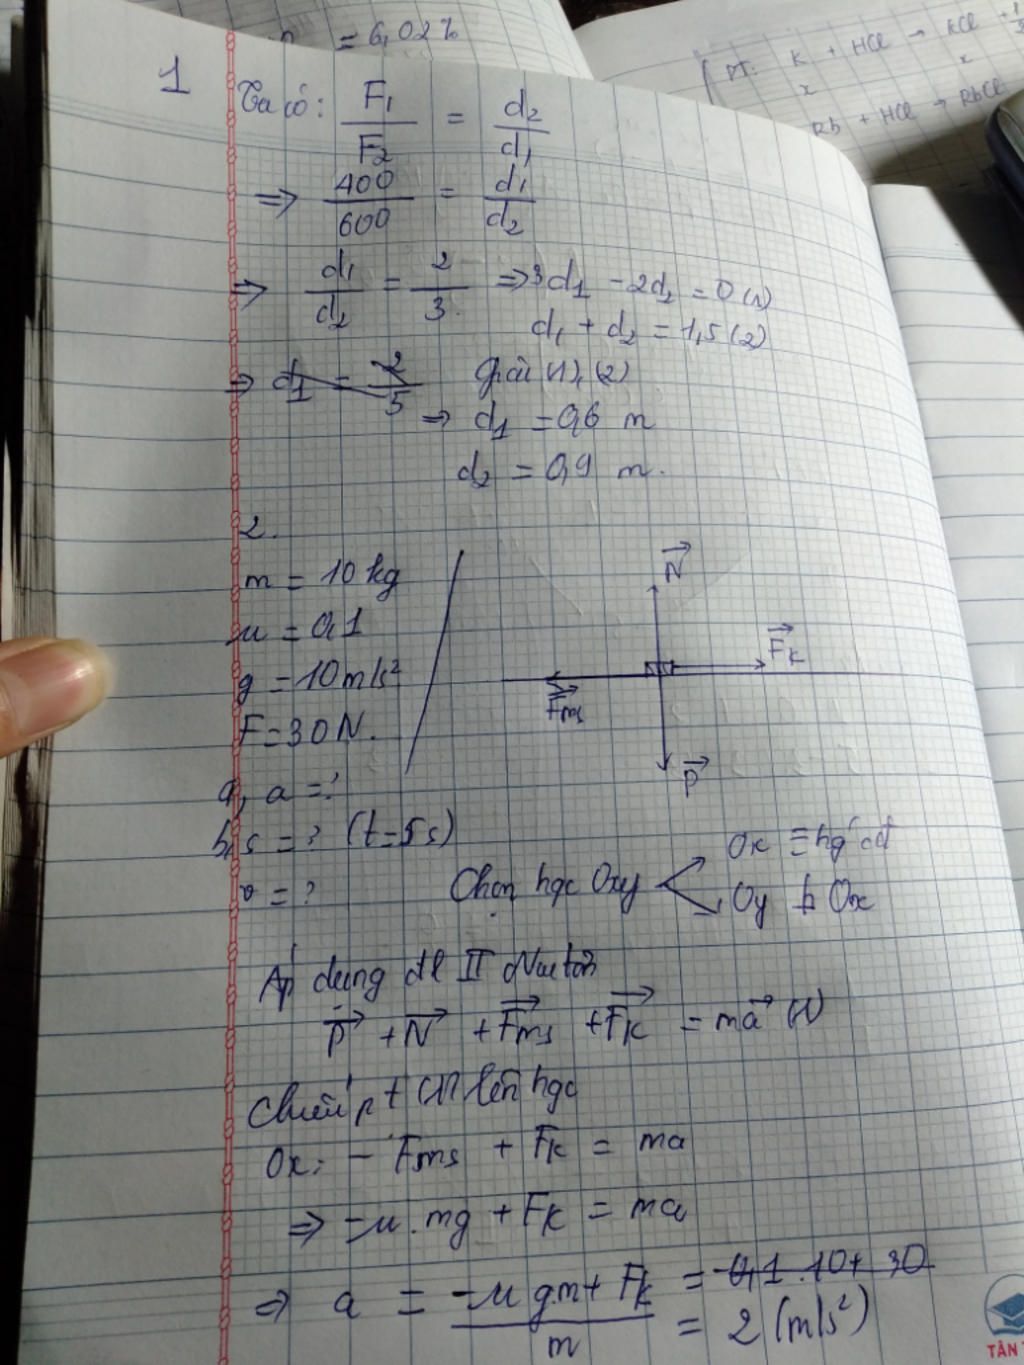 = 6,02%
PT: K + HCl → KCl +
x
x
Rb + HCl → RbCl
1
Ta có: F1/F2 = d2/d1
⇒ 400/600 = d1/d2
⇒ d1/d2 = 2/3 ⇒ 3d1 - 2d2 = 0 (1)
d1 + d2 = 1,5 (2)
⇒ d1 = 2/5 Giải (1), (2)
⇒ d1 = 0,6 m
d2 = 0,9 m.
2.
m = 10 kg
μ = 0,1
g = 10 m/s²
F = 30 N.
a, a = ?
b, s = ? (t = 5s)
v = ?
N
Fk
Fms
P
Chọn hqc Oxy < Ox ≡ hg cđ
Oy ⊥ Ox
Áp dụng đl II Newton
P + N + Fms + Fk = ma (1)
Chiếu pt (1) lên hqc
Ox: - Fms + Fk = ma
⇒ -μ.mg + Fk = ma
⇒ a = (-μ gm + Fk)/m = -0,1.10+30
= 2 (m/s²)
TÂN